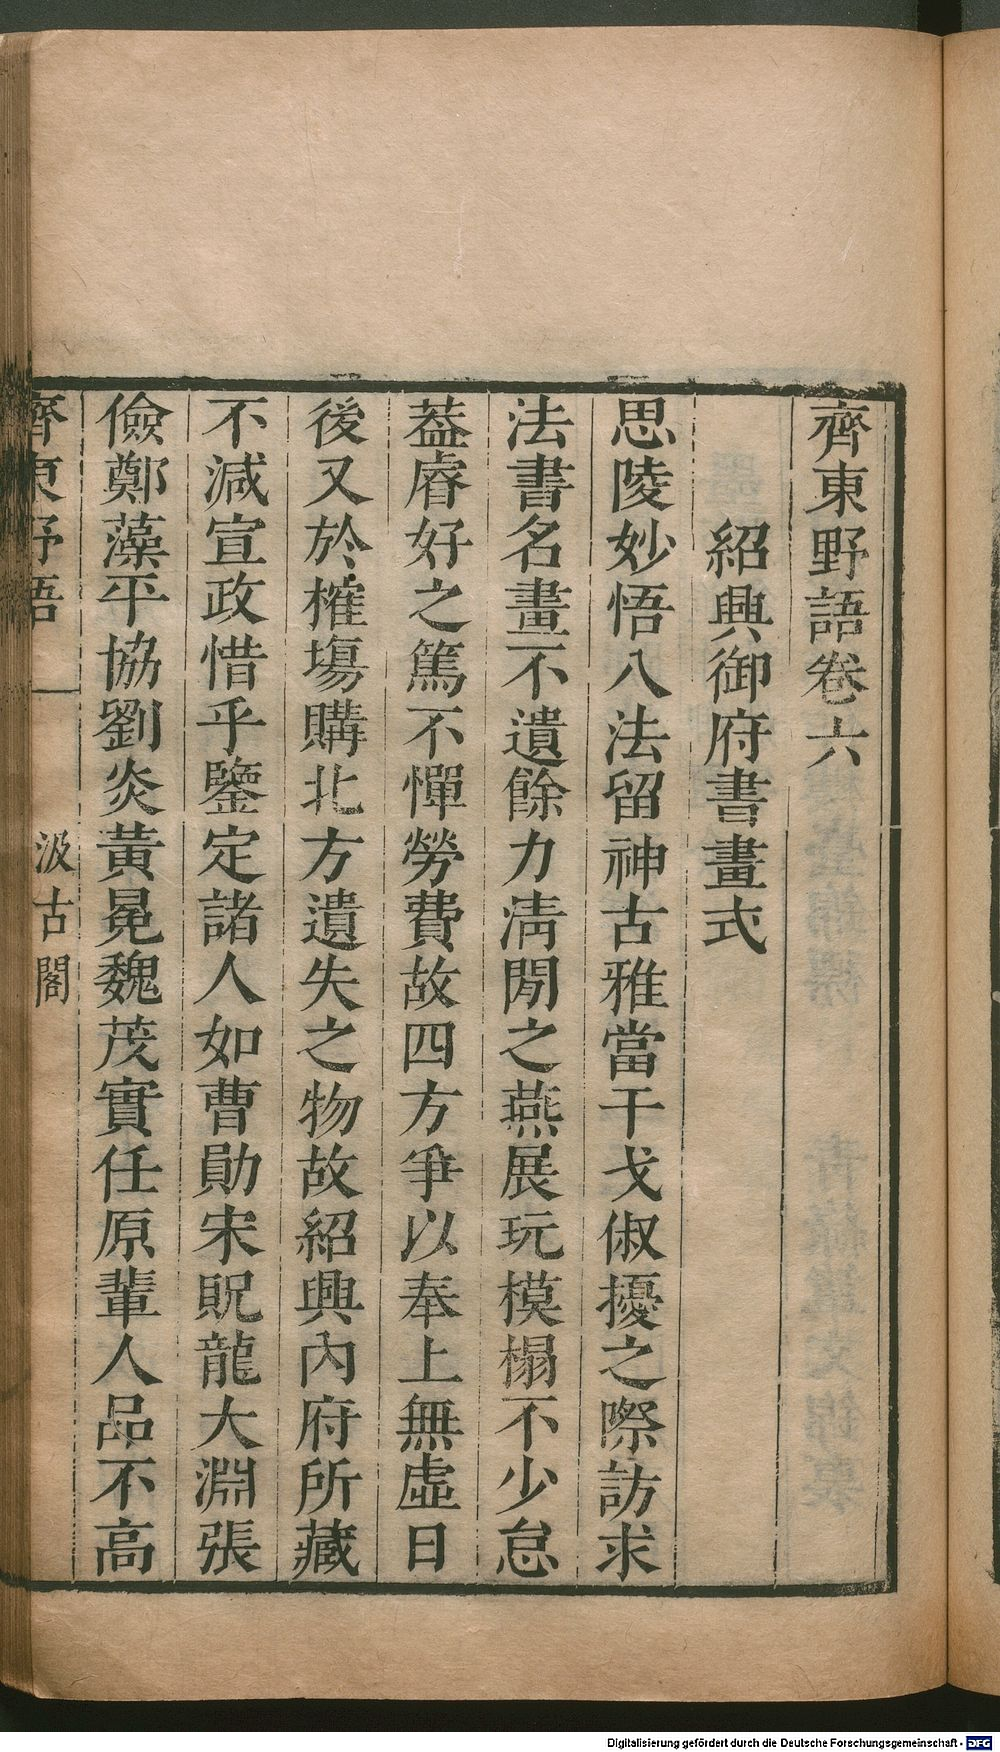 齊東野語卷六
紹興御府書畫式
思陵妙悟八法留神古雅當干戈俶擾之際訪求
法書名畫不遺餘力淸閒之燕展玩模榻不少怠
葢睿好之篤不憚勞費故四方爭以奉上無虛日
後又於榷塲購北方遺失之物故紹興內府所藏
不減宣政惜乎鑒定諸人如曹勛宋貺龍大淵張
儉鄭藻平協劉炎黃冕魏茂實任原輩人品不高
齊東野語 一 汲古閣
Digitalisierung gefördert durch die Deutsche Forschungsgemeinschaft - DFG